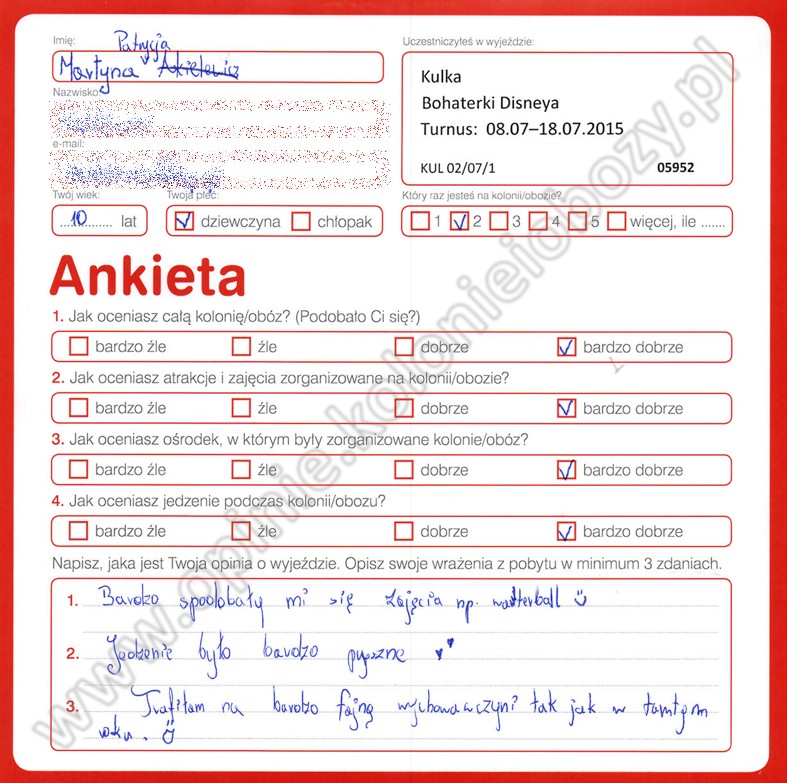 Imię:
Patrycja
Martyna
Nazwisko
e-mail:
Twój wiek:
10 lat
Twoja płeć:
dziewczyna chłopak
Uczestniczyłeś w wyjeździe:
Kulka
Bohaterki Disneya
Turnus: 08.07–18.07.2015
KUL 02/07/1 05952
Który raz jesteś na kolonii/obozie?
1 2 3 4 5 więcej, ile .......
Ankieta
1. Jak oceniasz całą kolonię/obóz? (Podobało Ci się?)
bardzo źle źle dobrze bardzo dobrze
2. Jak oceniasz atrakcje i zajęcia zorganizowane na kolonii/obozie?
bardzo źle źle dobrze bardzo dobrze
3. Jak oceniasz ośrodek, w którym były zorganizowane kolonie/obóz?
bardzo źle źle dobrze bardzo dobrze
4. Jak oceniasz jedzenie podczas kolonii/obozu?
bardzo źle źle dobrze bardzo dobrze
Napisz, jaka jest Twoja opinia o wyjeździe. Opisz swoje wrażenia z pobytu w minimum 3 zdaniach.
1. Bardzo spodobały mi się zajęcia np. watterball
2. Jedzenie było bardzo pyszne
3. Trafiłam na bardzo fajną wychowawczyni tak jak w tamtym
roku.
www.opinie.kolonieiobozy.pl